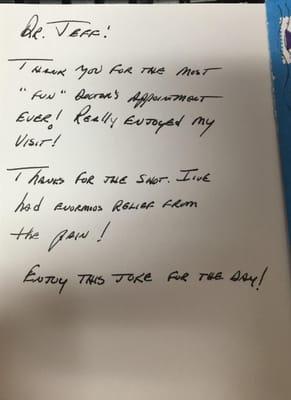 DR. JEFF!
THANK YOU FOR THE MOST
"FUN" DOCTOR'S APPOINTMENT
EVER! REALLY ENJOYED MY
VISIT!
THANKS FOR THE SHOT. I'VE
HAD ENORMIOS RELIEF FROM
THE PAIN!
ENJOY THIS JOKE FOR THE DAY!